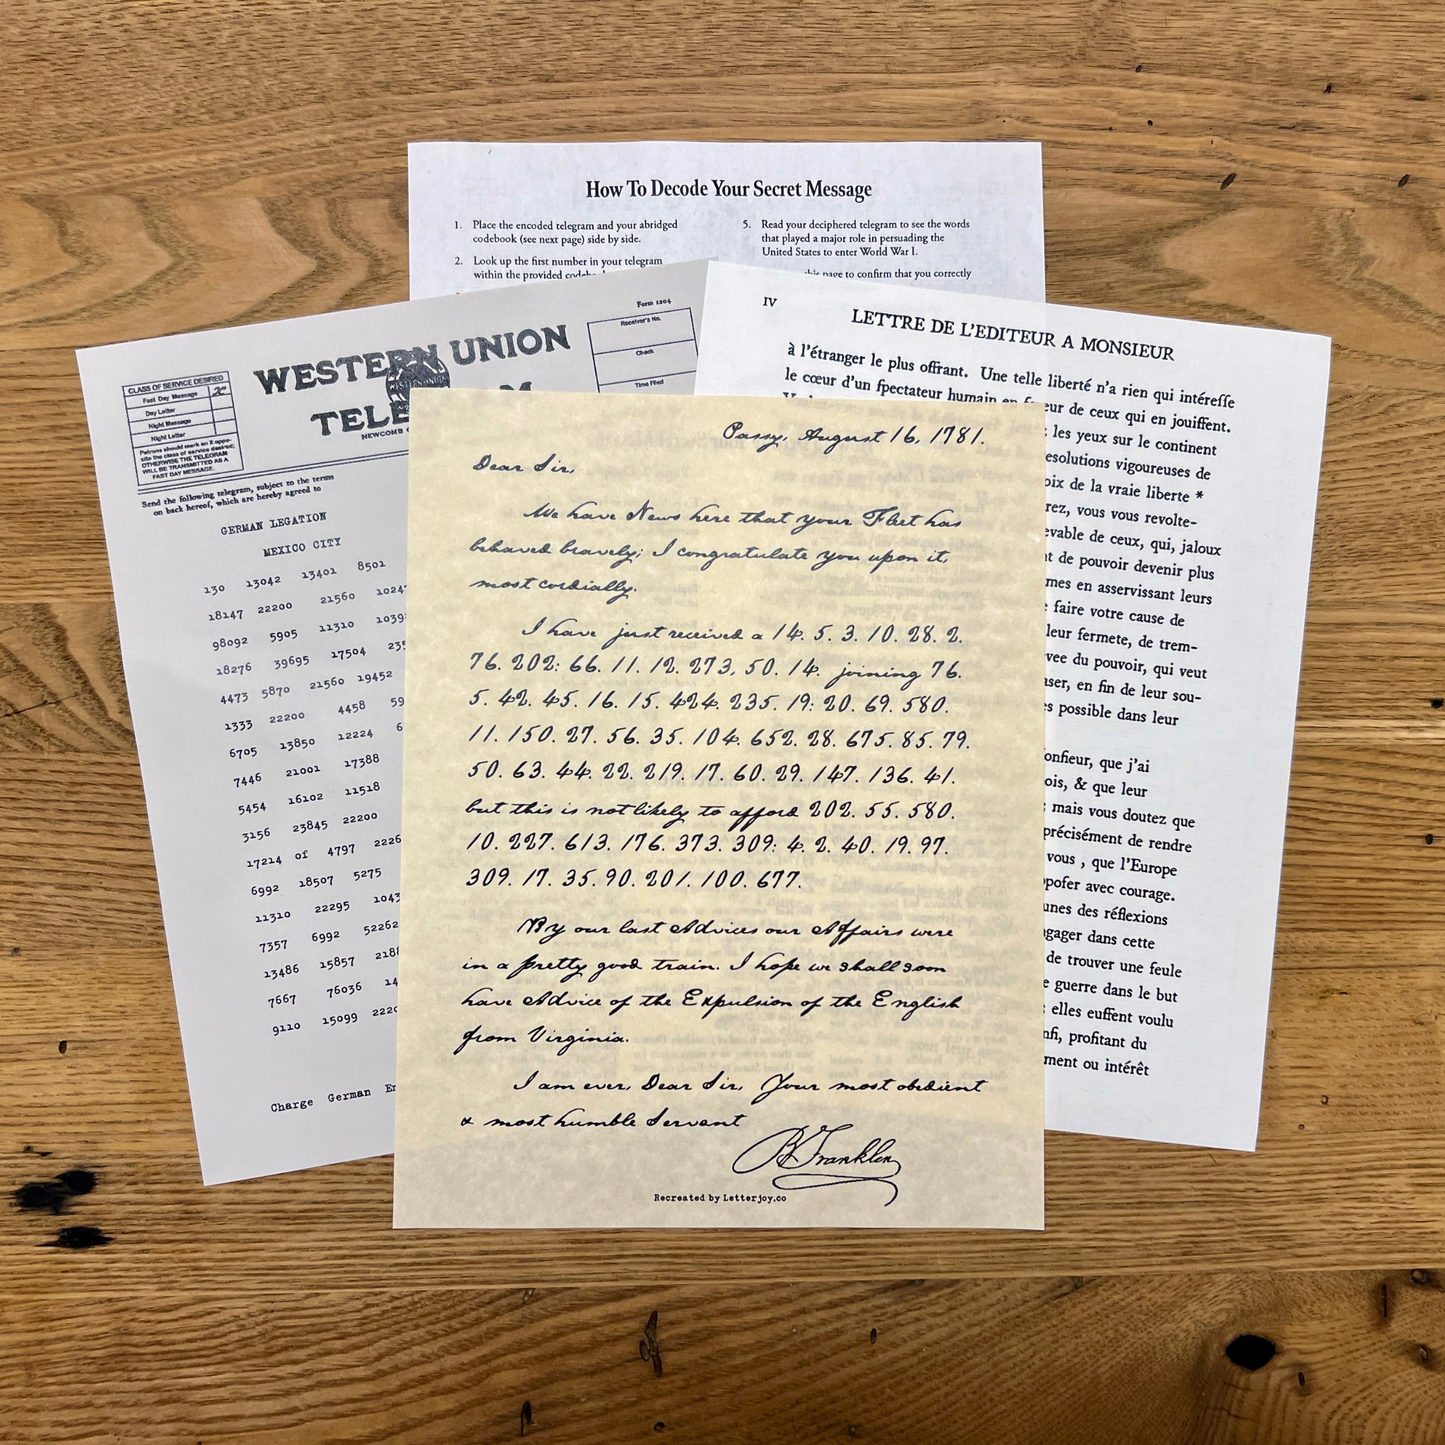 How To Decode Your Secret Message
1. Place the encoded telegram and your abridged
codebook (see next page) side by side.
2. Look up the first number in your telegram
within the provided
5. Read your deciphered telegram to see the words
that played a major role in persuading the
United States to enter World War I.
this page to confirm that you correctly
Form 1204
WESTERN UNION
TELE M
NEWCOMB
CLASS OF SERVICE DESIRED
Fast Day Message
Day Letter
Night Message
Night Letter
Patrons should mark an X oppo-
site the class of service desired;
OTHERWISE THE TELEGRAM
WILL BE TRANSMITTED AS A
FAST DAY MESSAGE.
Receiver's No.
Check
Time Filed
Send the following telegram, subject to the terms
on back hereof, which are hereby agreed to
GERMAN LEGATION
MEXICO CITY
130 13042 13401 8501
18147 22200 21560 1024
98092 5905 11310 1039
18276 39695 17504 23
4473 5870 21560 19452
1333 22200 4458 59
6705 13850 12224 6
7446 21001 17388
5454 16102 11518
3156 23845 22200
17214 of 4797 2226
6992 18507 5275
11310 22295 1043
7357 6992 52262
13486 15857 218
7667 76036 14
9110 15099 222
Charge German
IV
LETTRE DE L'EDITEUR A MONSIEUR
à l'étranger le plus offrant. Une telle liberté n'a rien qui intéreſſe
le cœur d'un ſpectateur humain en eur de ceux qui en jouiſſent.
les yeux sur le continent
esolutions vigoureuses de
oix de la vraie liberte *
rez, vous vous revolte-
evable de ceux, qui, jaloux
t de pouvoir devenir plus
mes en asservissant leurs
faire votre cause de
leur fermete, de trem-
vee du pouvoir, qui veut
ser, en fin de leur sou-
s possible dans leur
onſieur, que j'ai
ois, & que leur
mais vous doutez que
précisément de rendre
vous , que l'Europe
ppoſer avec courage.
unes des réflexions
gager dans cette
de trouver une ſeule
e guerre dans le but
elles euſſent voulu
nſi, profitant du
ment ou intérêt
Passy, August 16, 1781.
Dear Sir,
We have News here that your Fleet has
behaved bravely; I congratulate you upon it,
most cordially.
I have just received a 14. 5. 3. 10. 28. 2.
76. 202: 66. 11. 12. 273, 50. 14. joining 76.
5. 42. 45. 16. 15. 424. 235. 19: 20. 69. 580.
11. 150. 27. 56. 35. 104. 652. 28. 675. 85. 79.
50. 63. 44. 22. 219. 17. 60. 29. 147. 136. 41.
but this is not likely to afford 202. 55. 580.
10. 227. 613. 176. 373. 309: 4. 2. 40. 19. 97.
309. 17. 35. 90. 201. 100. 677.
By our last Advices our Affairs were
in a pretty good train. I hope we shall soon
have Advice of the Expulsion of the English
from Virginia.
I am ever, Dear Sir, Your most obedient
& most humble Servant
B Franklin
Recreated by Letterjoy.co